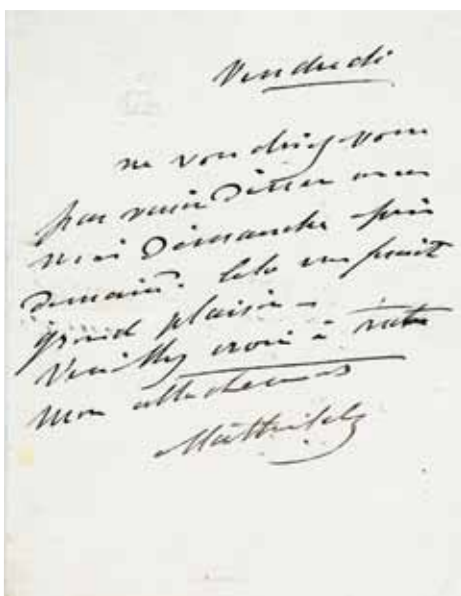 Vendredi
ne voudriez-vous
pas venir Diner avec
moi Dimanche après
Demain. Cela me ferait
grand plaisir –
Veuillez croire à
mon attachement
Mathilde